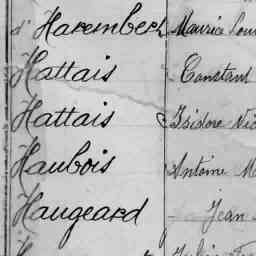 d'Harembert Maurice Lou
Hattais Constant
Hattais Isidore Vic
Haubois Antoine M
Haugeard - Jean